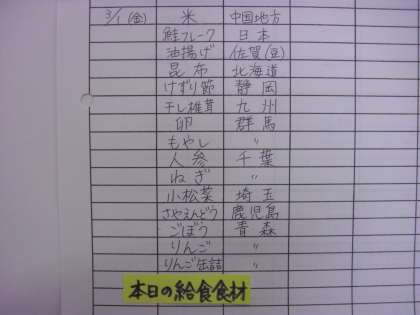 3/1 (金) 米 中国地方
鮭フレーク 日本
油揚げ 佐賀(豆)
昆布 北海道
けずり節 静岡
干し椎茸 九州
卵 群馬
もやし 〃
人参 千葉
ねぎ 〃
小松菜 埼玉
さやえんどう 鹿児島
ごぼう 青森
りんご 〃
りんご缶詰 〃
本日の給食食材